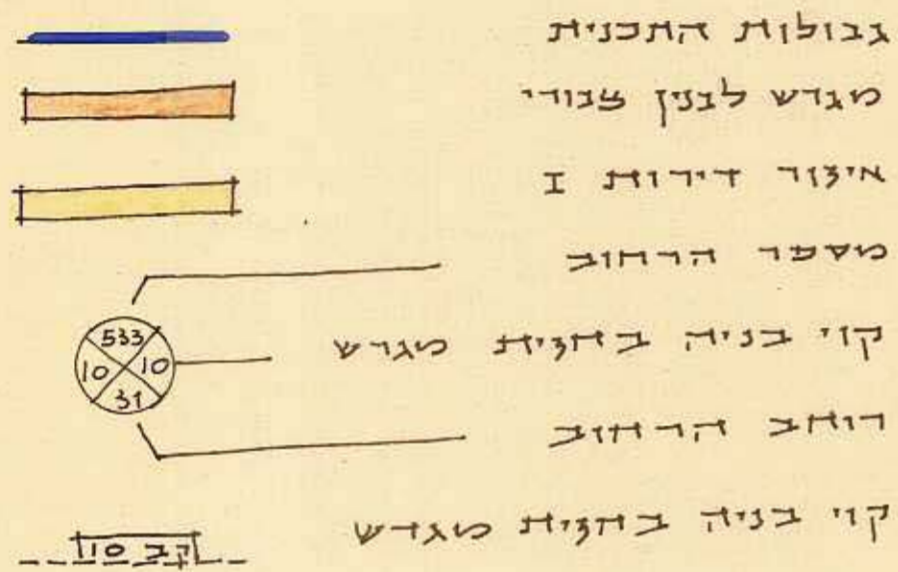 גבולות התכנית
מגרש לבנין צבורי
איזור דירות I
מספר הרחוב
533
קוי בניה בחזית מגרש
10 10
31
רוחב הרחוב
קוי בניה בחזית מגרש
קב 10